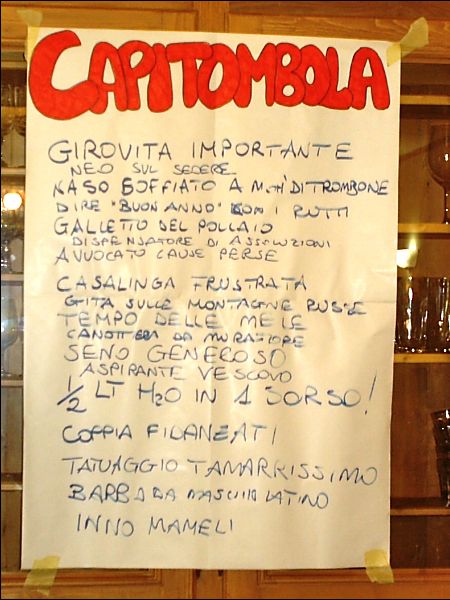 CAPITOMBOLA
GIROVITA IMPORTANTE
NEO SUL SEDERE
NASO SOFFIATO A MO' DI TROMBONE
DIRE "BUON ANNO" CON I RUTTI
GALLETTO DEL POLLAIO
DISPENSATORE DI ASSOLUZIONI
AVVOCATO CAUSE PERSE
CASALINGA FRUSTRATA
GITA SULLE MONTAGNE RUSSE
TEMPO DELLE MELE
CANOTTIERA DA MURATORE
SENO GENEROSO
ASPIRANTE VESCOVO
1/2 LT H2O IN 1 SORSO!
COPPIA FIDANZATI
TATUAGGIO TAMARRISSIMO
BARBA DA MASCHIO LATINO
INNO MAMELI